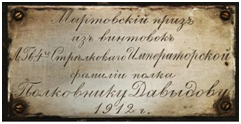 Мартовскій призъ
изъ винтовокъ
Л. Гв. 4го Стрѣлковаго Императорской
фамиліи полка
Полковнику Давыдову
1912 г.